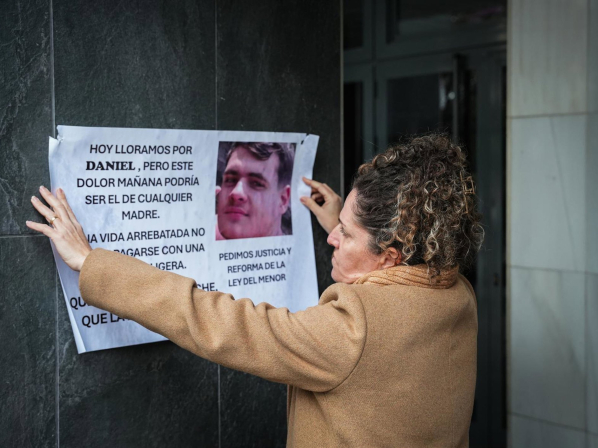 HOY LLORAMOS POR
DANIEL , PERO ESTE
DOLOR MAÑANA PODRÍA
SER EL DE CUALQUIER
MADRE.
VIDA ARREBATADA NO
PAGARSE CON UNA
LIGERA.
QUE LA
PEDIMOS JUSTICIA Y
REFORMA DE LA
LEY DEL MENOR